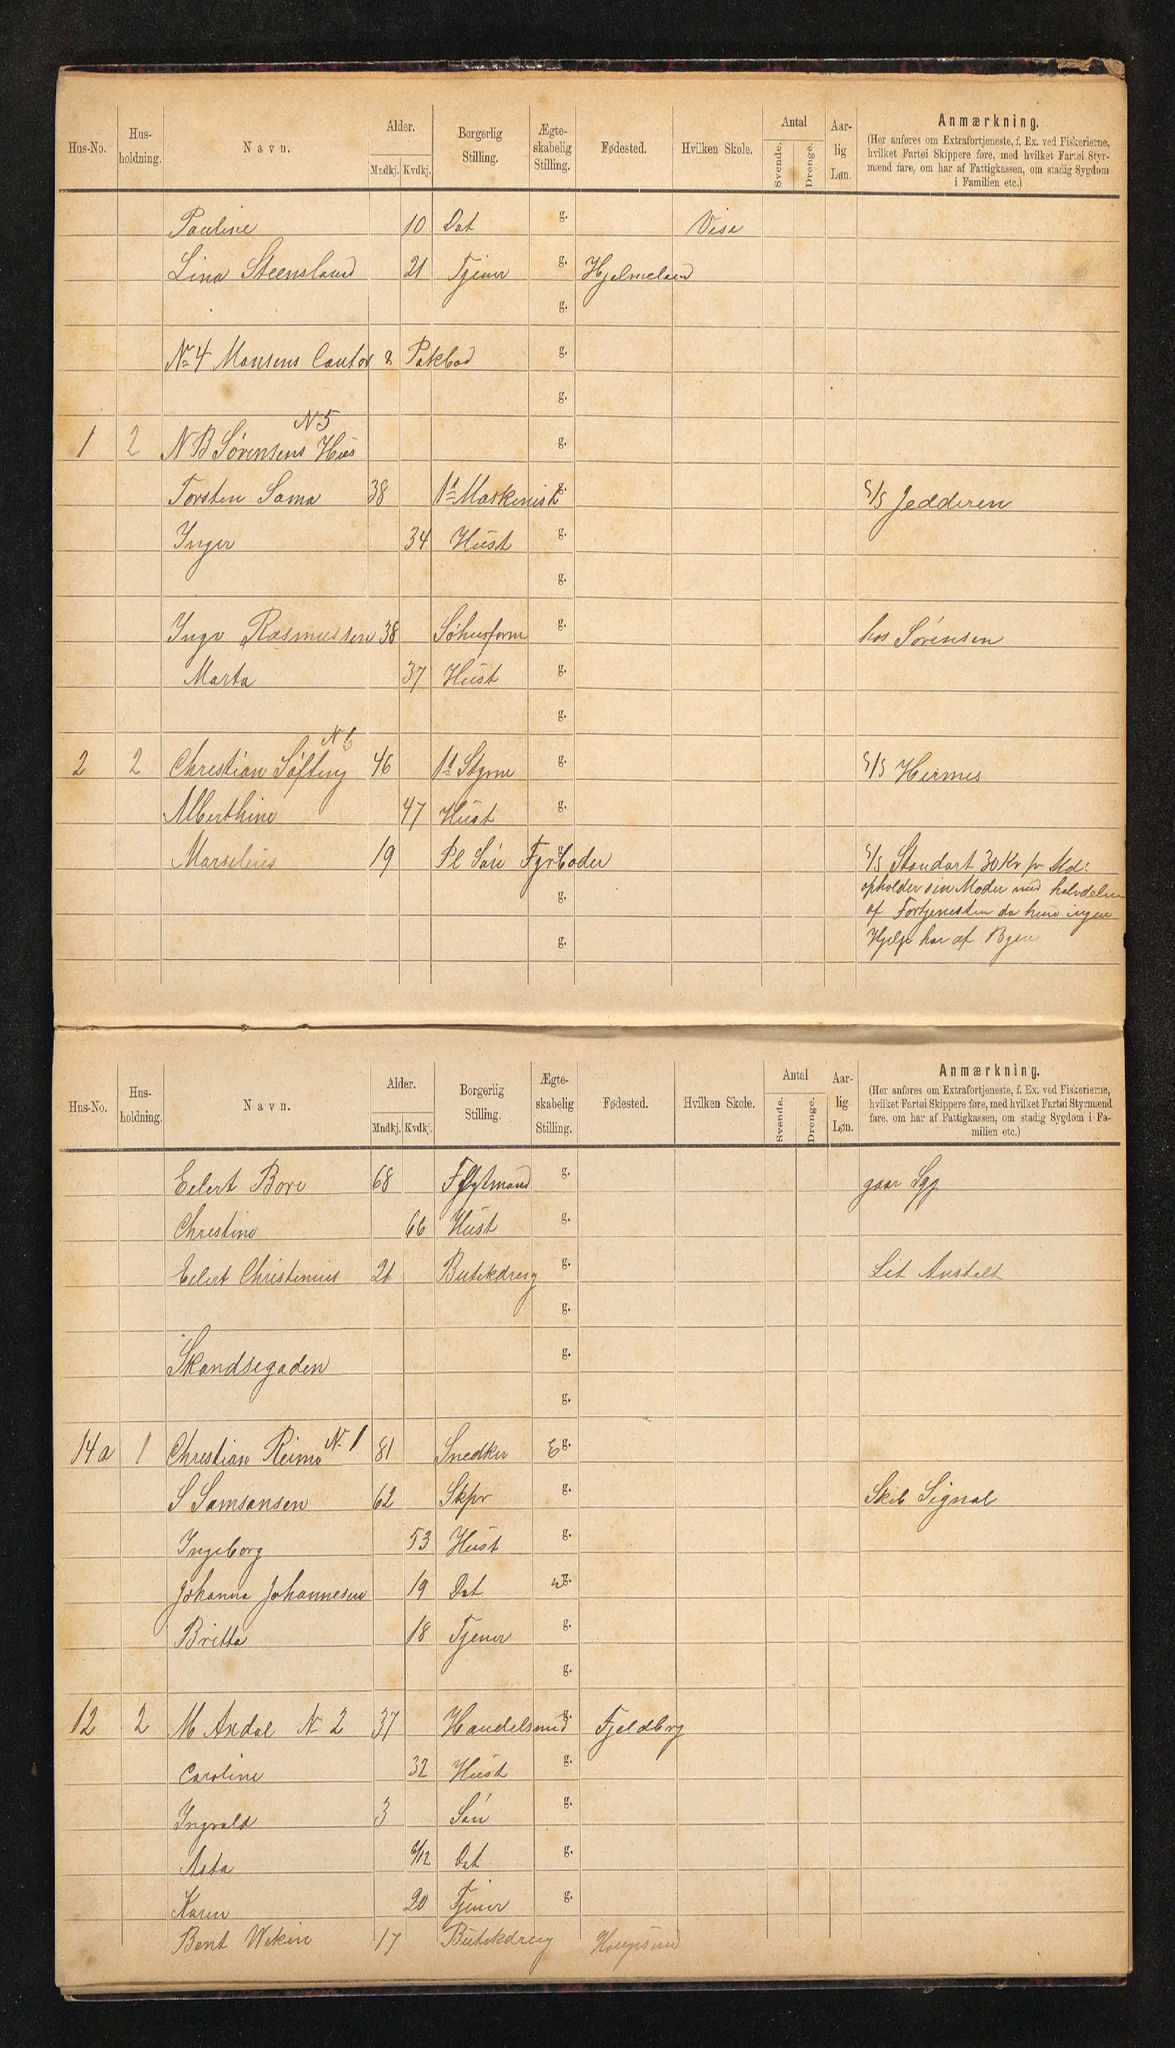 Hus-No. Hus-holdning. Navn. Alder. Mndkj. Kvdkj. Borgerlig Stilling. Ægte-skabelig Stilling. Fødested. Hvilken Skole. Antal Svende. Drenge. Aar-lig Løn. Anmærkning.
(Her anføres om Extrafortjeneste, f. Ex. ved Fiskerierne, hvilket Fartøi Skippere føre, med hvilket Fartøi Styrmænd fare, om har af Fattigkassen, om stadig Sygdom i Familien etc.)
Pauline 10 Dat g.
Lina Steensland 21 Tjener g. Hjelmeland
g.
No 4 Monsens Contor & Pakbod g.
g.
No 5
1 2 N B Sørensens Hus g.
Torsten Soma 38 1ste Maskinist g. S/S Jedderen
Inger 34 Hust g.
g.
Ingv Rasmussen 38 Søhusform g. hos Sørensen
Marta 37 Hust g.
g.
N 6
2 2 Christian Søfting 46 1st Styrm g. S/S Hermes
Alberthine 47 Hust g.
Marselius 19 Pl Søn Fyrbøder g. S/S Standart 30 Kr pr Md:
g. opholder sin Moder med halvdelen
af Fortjenesten da hun ingen
g. Hjelp har af Byen
Hus-No. Hus-holdning. Navn. Alder. Mndkj. Kvdkj. Borgerlig Stilling. Ægte-skabelig Stilling. Fødested. Hvilken Skole. Antal Svende. Drenge. Aar-lig Løn. Anmærkning.
(Her anføres om Extrafortjeneste, f. Ex. ved Fiskerierne, hvilket Fartøi Skippere føre, med hvilket Fartøi Styrmænd fare, om har af Fattigkassen, om stadig Sygdom i Familien etc.)
Eilert Bore 68 Fløtmand g. gaar
Christine 66 Hust g.
Eilert Christinius 21 Butikdreng g. Lit Anstalt
g.
Skandsegaden g.
g.
14a 1 Christian Reime No 1 81 Snedker E g.
S Samsonsen 62 Skpr g. Skib Signal
Ingeborg 53 Hust g.
Johanna Johannesen 19 Dat g.
Britta 18 Tjener g.
g.
12 2 M Andal No 2 37 Handelsmd g. Fjeldbrg
Caroline 32 Hust g.
Ingvald 3 Søn g.
Asta 6/12 Dat g.
Karen 20 Tjener g.
Bent 17 Butikdreng